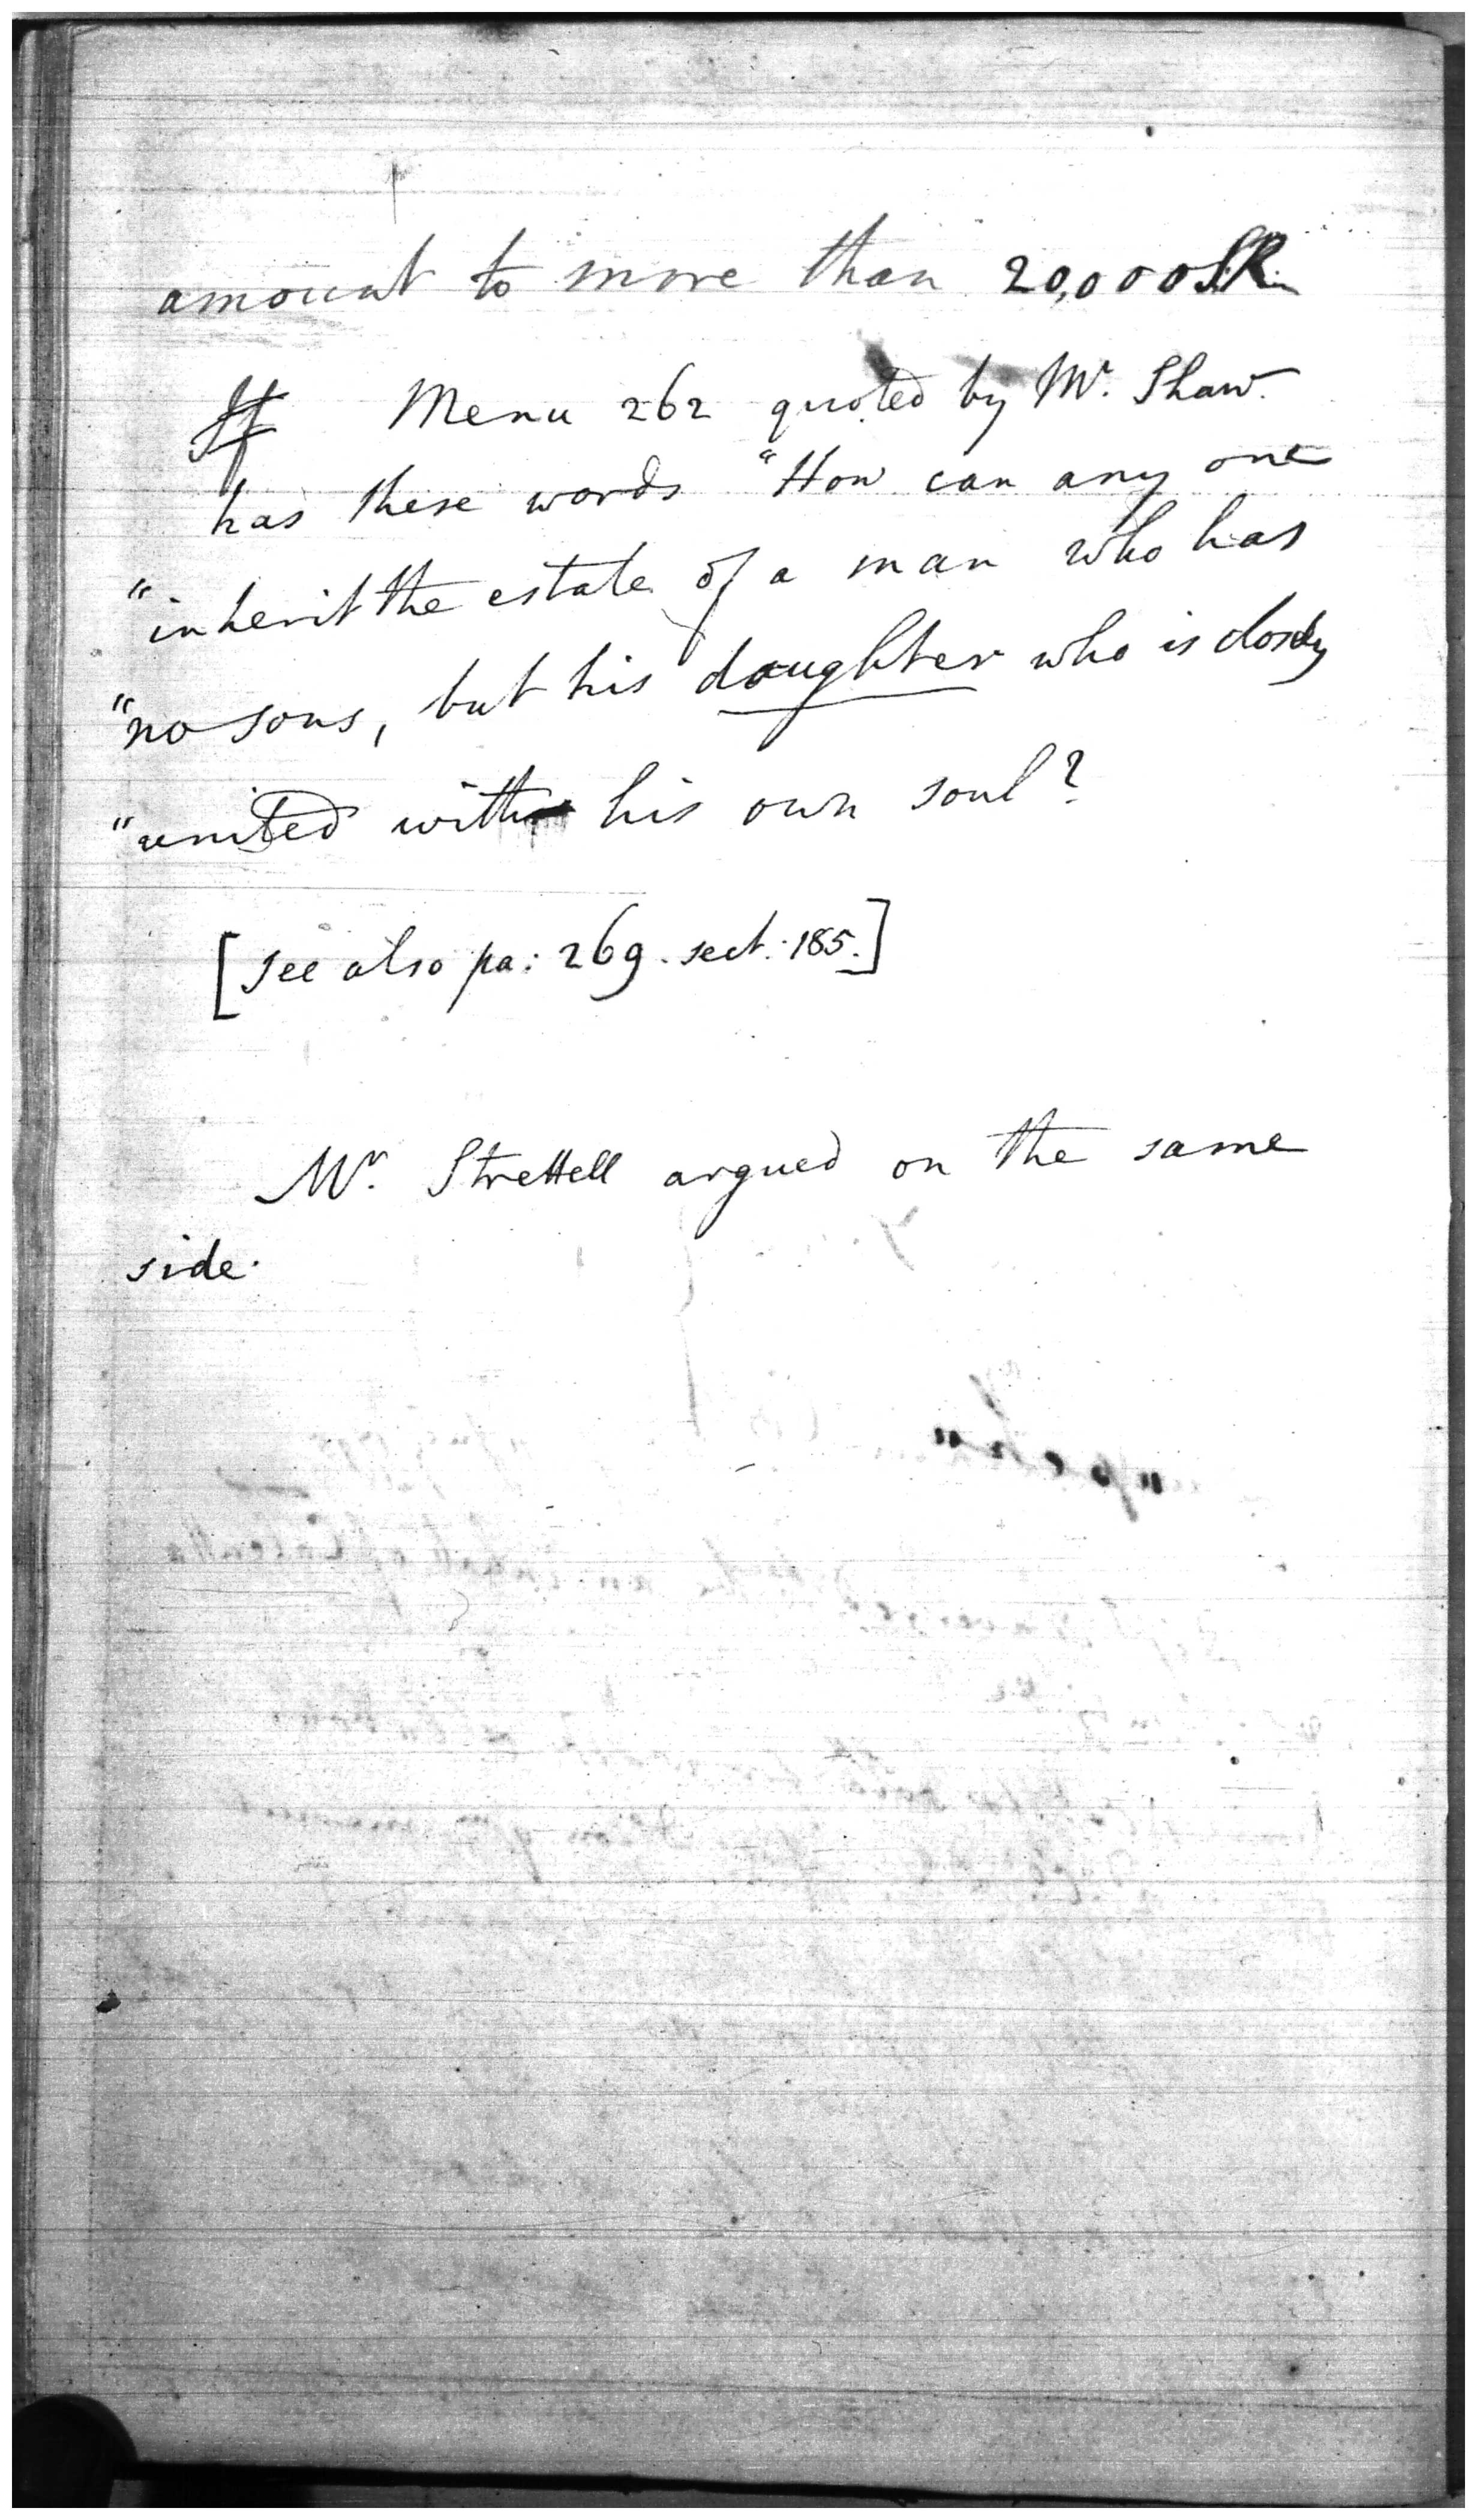 amount to more than 20,000 S.R.
If Menu 262 quoted by Mr. Shaw.
has these words "How can any one
"inherit the estate of a man who has
"no sons, but his daughter who is closely
"united with his own soul?
[see also pa: 269. sect. 185.]
Mr. Strettell argued on the same
side.